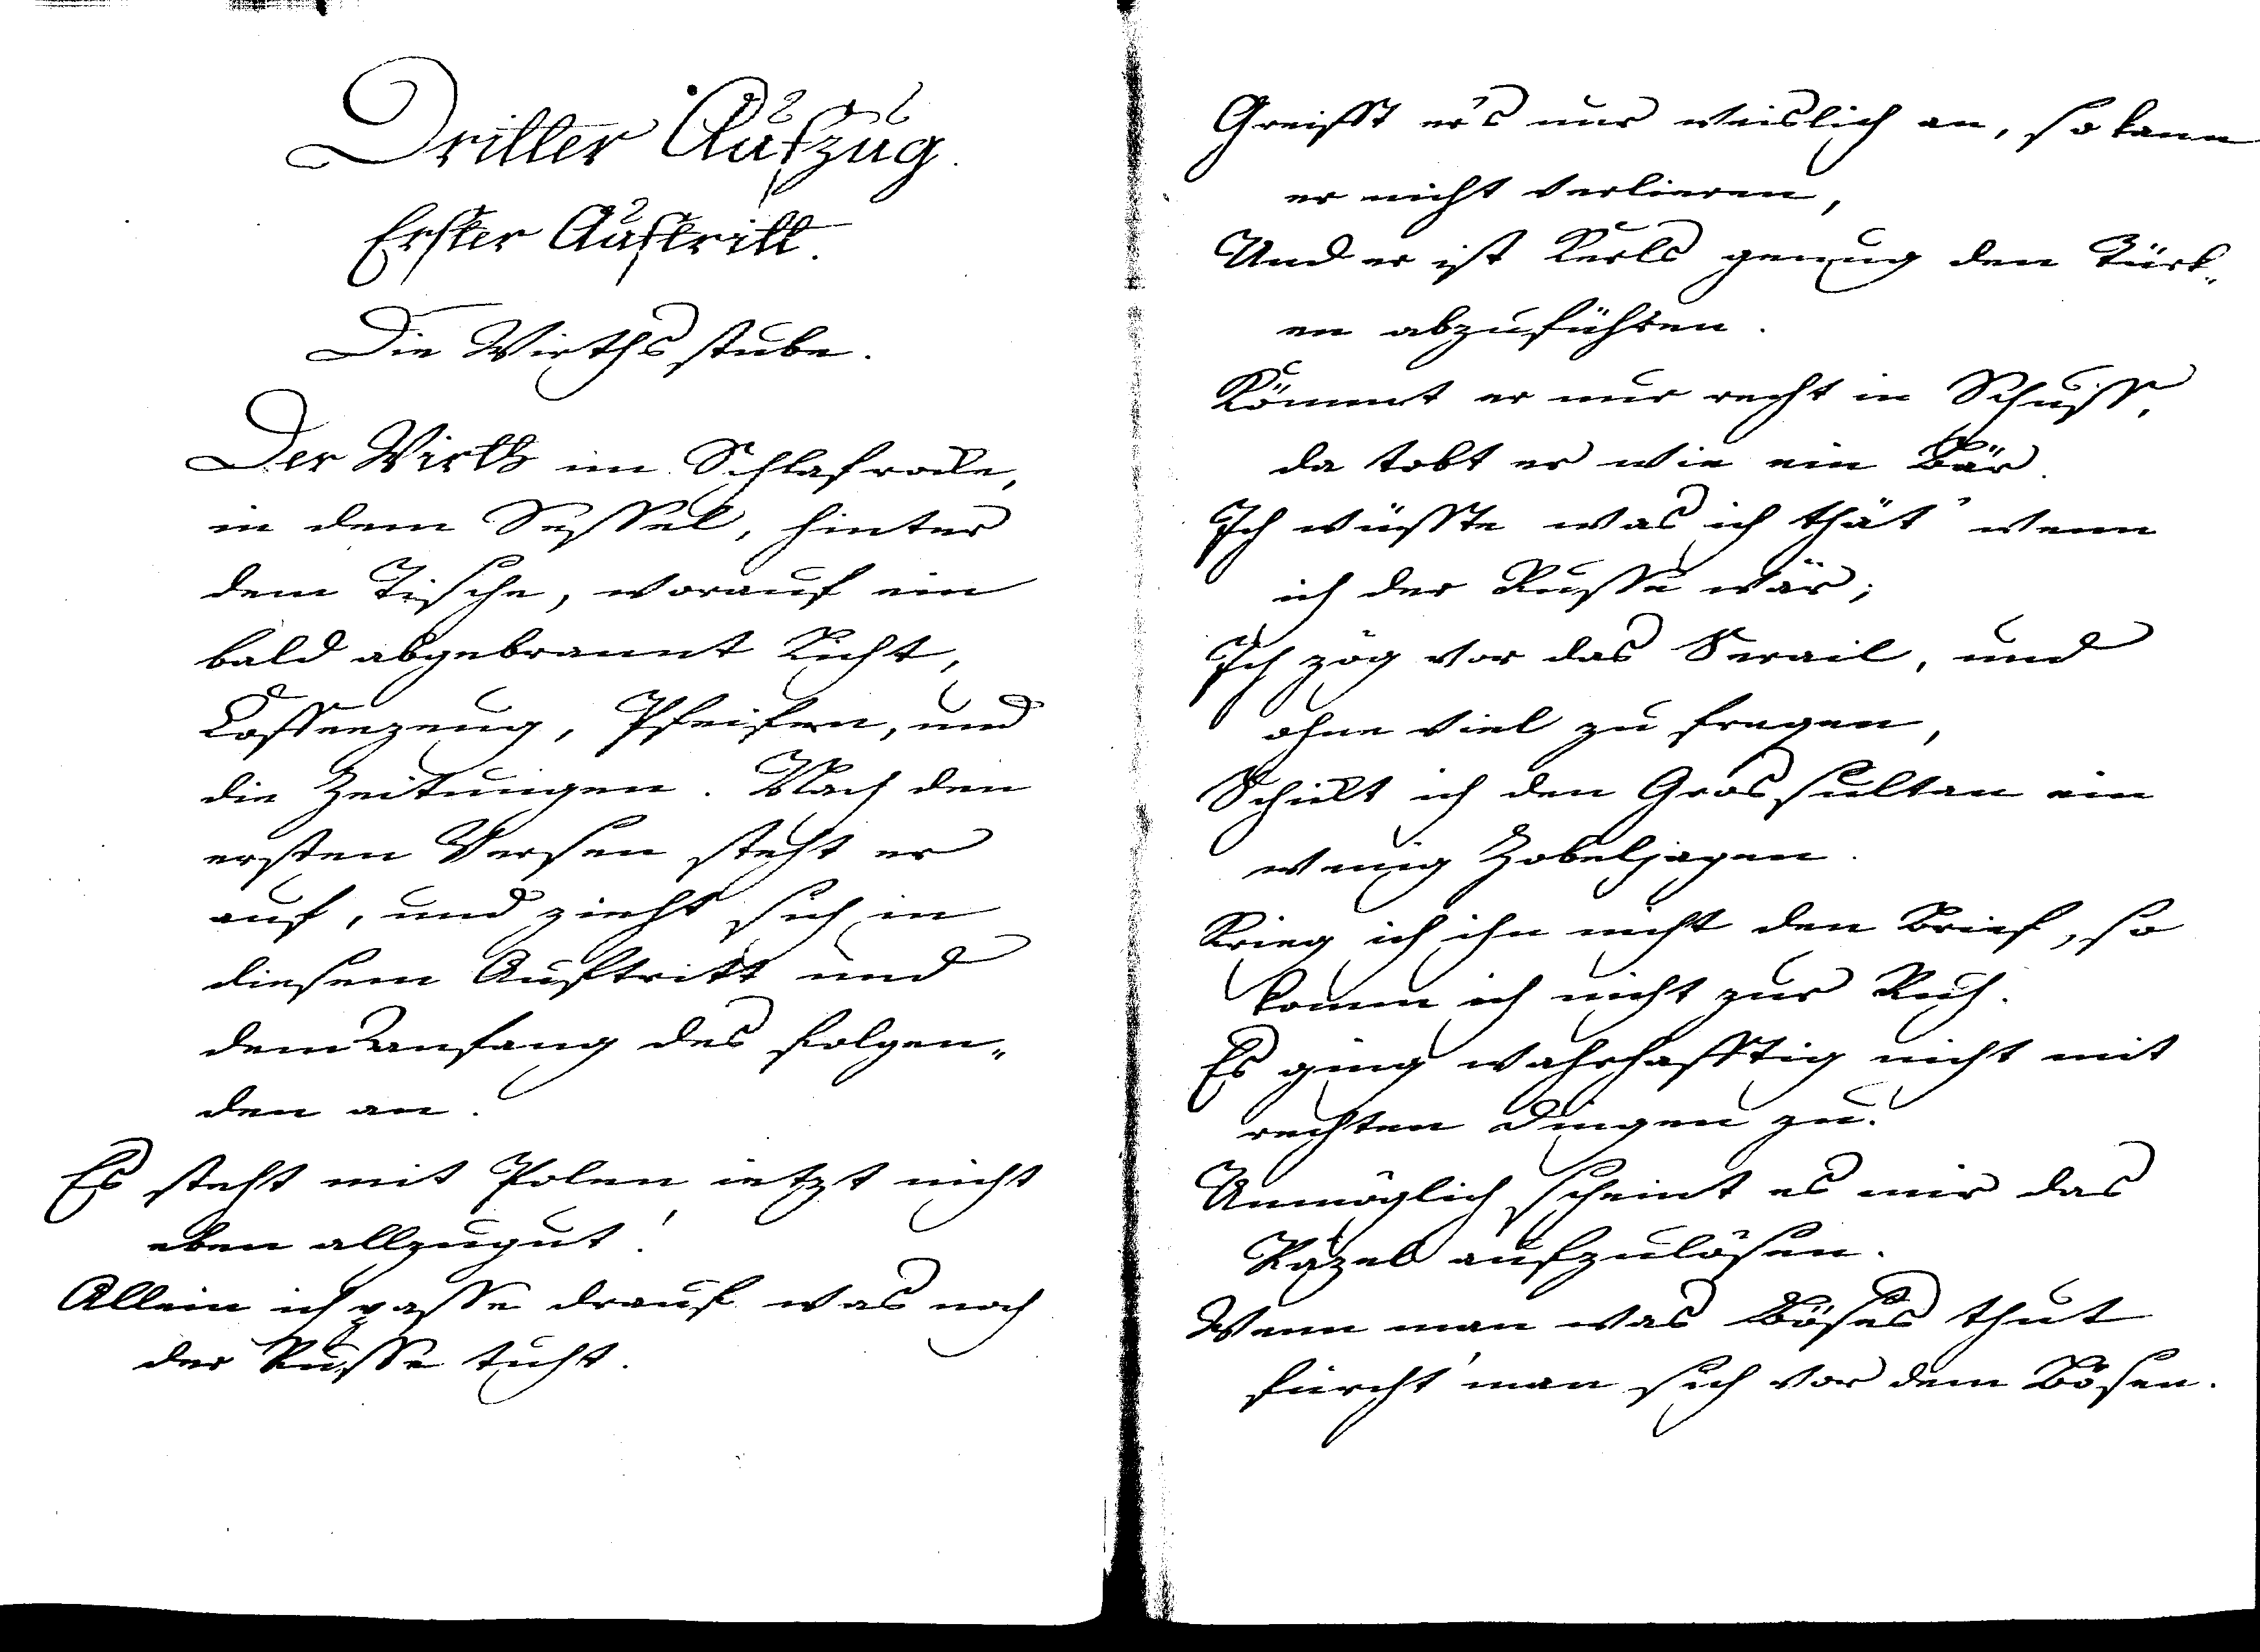 Dritter Aufzug.
Erster Auftritt.
Die Wirthsstube.
Der Wirth im Schlafrocke,
in dem Sessel, hinter
dem Tische, worauf ein
bald abgebrannt Licht,
Coffeezeug, Pfeifen, und
die Zeitungen. Nach den
ersten Versen steht er
auf, und zieht sich in
diesem Auftritt und
dem Anfang des folgen„
den an.
Es steht mit Polen ietzt nicht
eben allzugut!
Allein ich passe drauf was noch
der Russe tuht.
Greifft er's nur weislich an, so kann
er nicht verlieren,
Und er ist Kerls genug den Türk„
en abzuführen.
Kömmt er nur recht in Schuss,
da tobt er wie ein Bär.
Ich wüsste was ich thät' wenn
ich der Russe wär;
Ich zög vor das Serail, und
ohne viel zu fragen,
Schickt ich den Grossultan ein
wenig Zobeljagen.
Krieg ich ihn nicht den Brief, so
komm ich nicht zur Ruh.
Es ging wahrhafftig nicht mit
rechten Dingen zu.
Unmöglich scheint es mir das
Räzel aufzulösen.
Wenn man was Böses thut
fürcht' man sich vor dem Bösen.